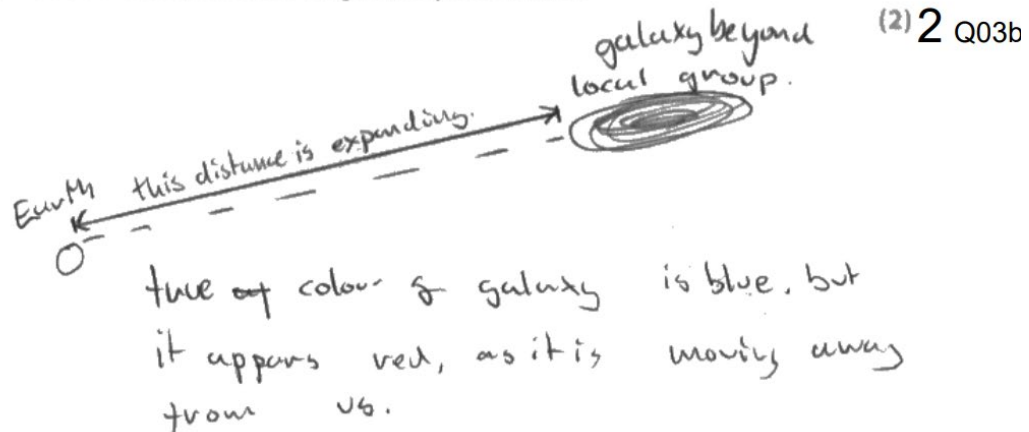 (2) 2 Q03b
galaxy beyond
local group.
this distance is expanding.
Earth
true of colour of galaxy is blue, but
it appars red, as it is moving away
from us.